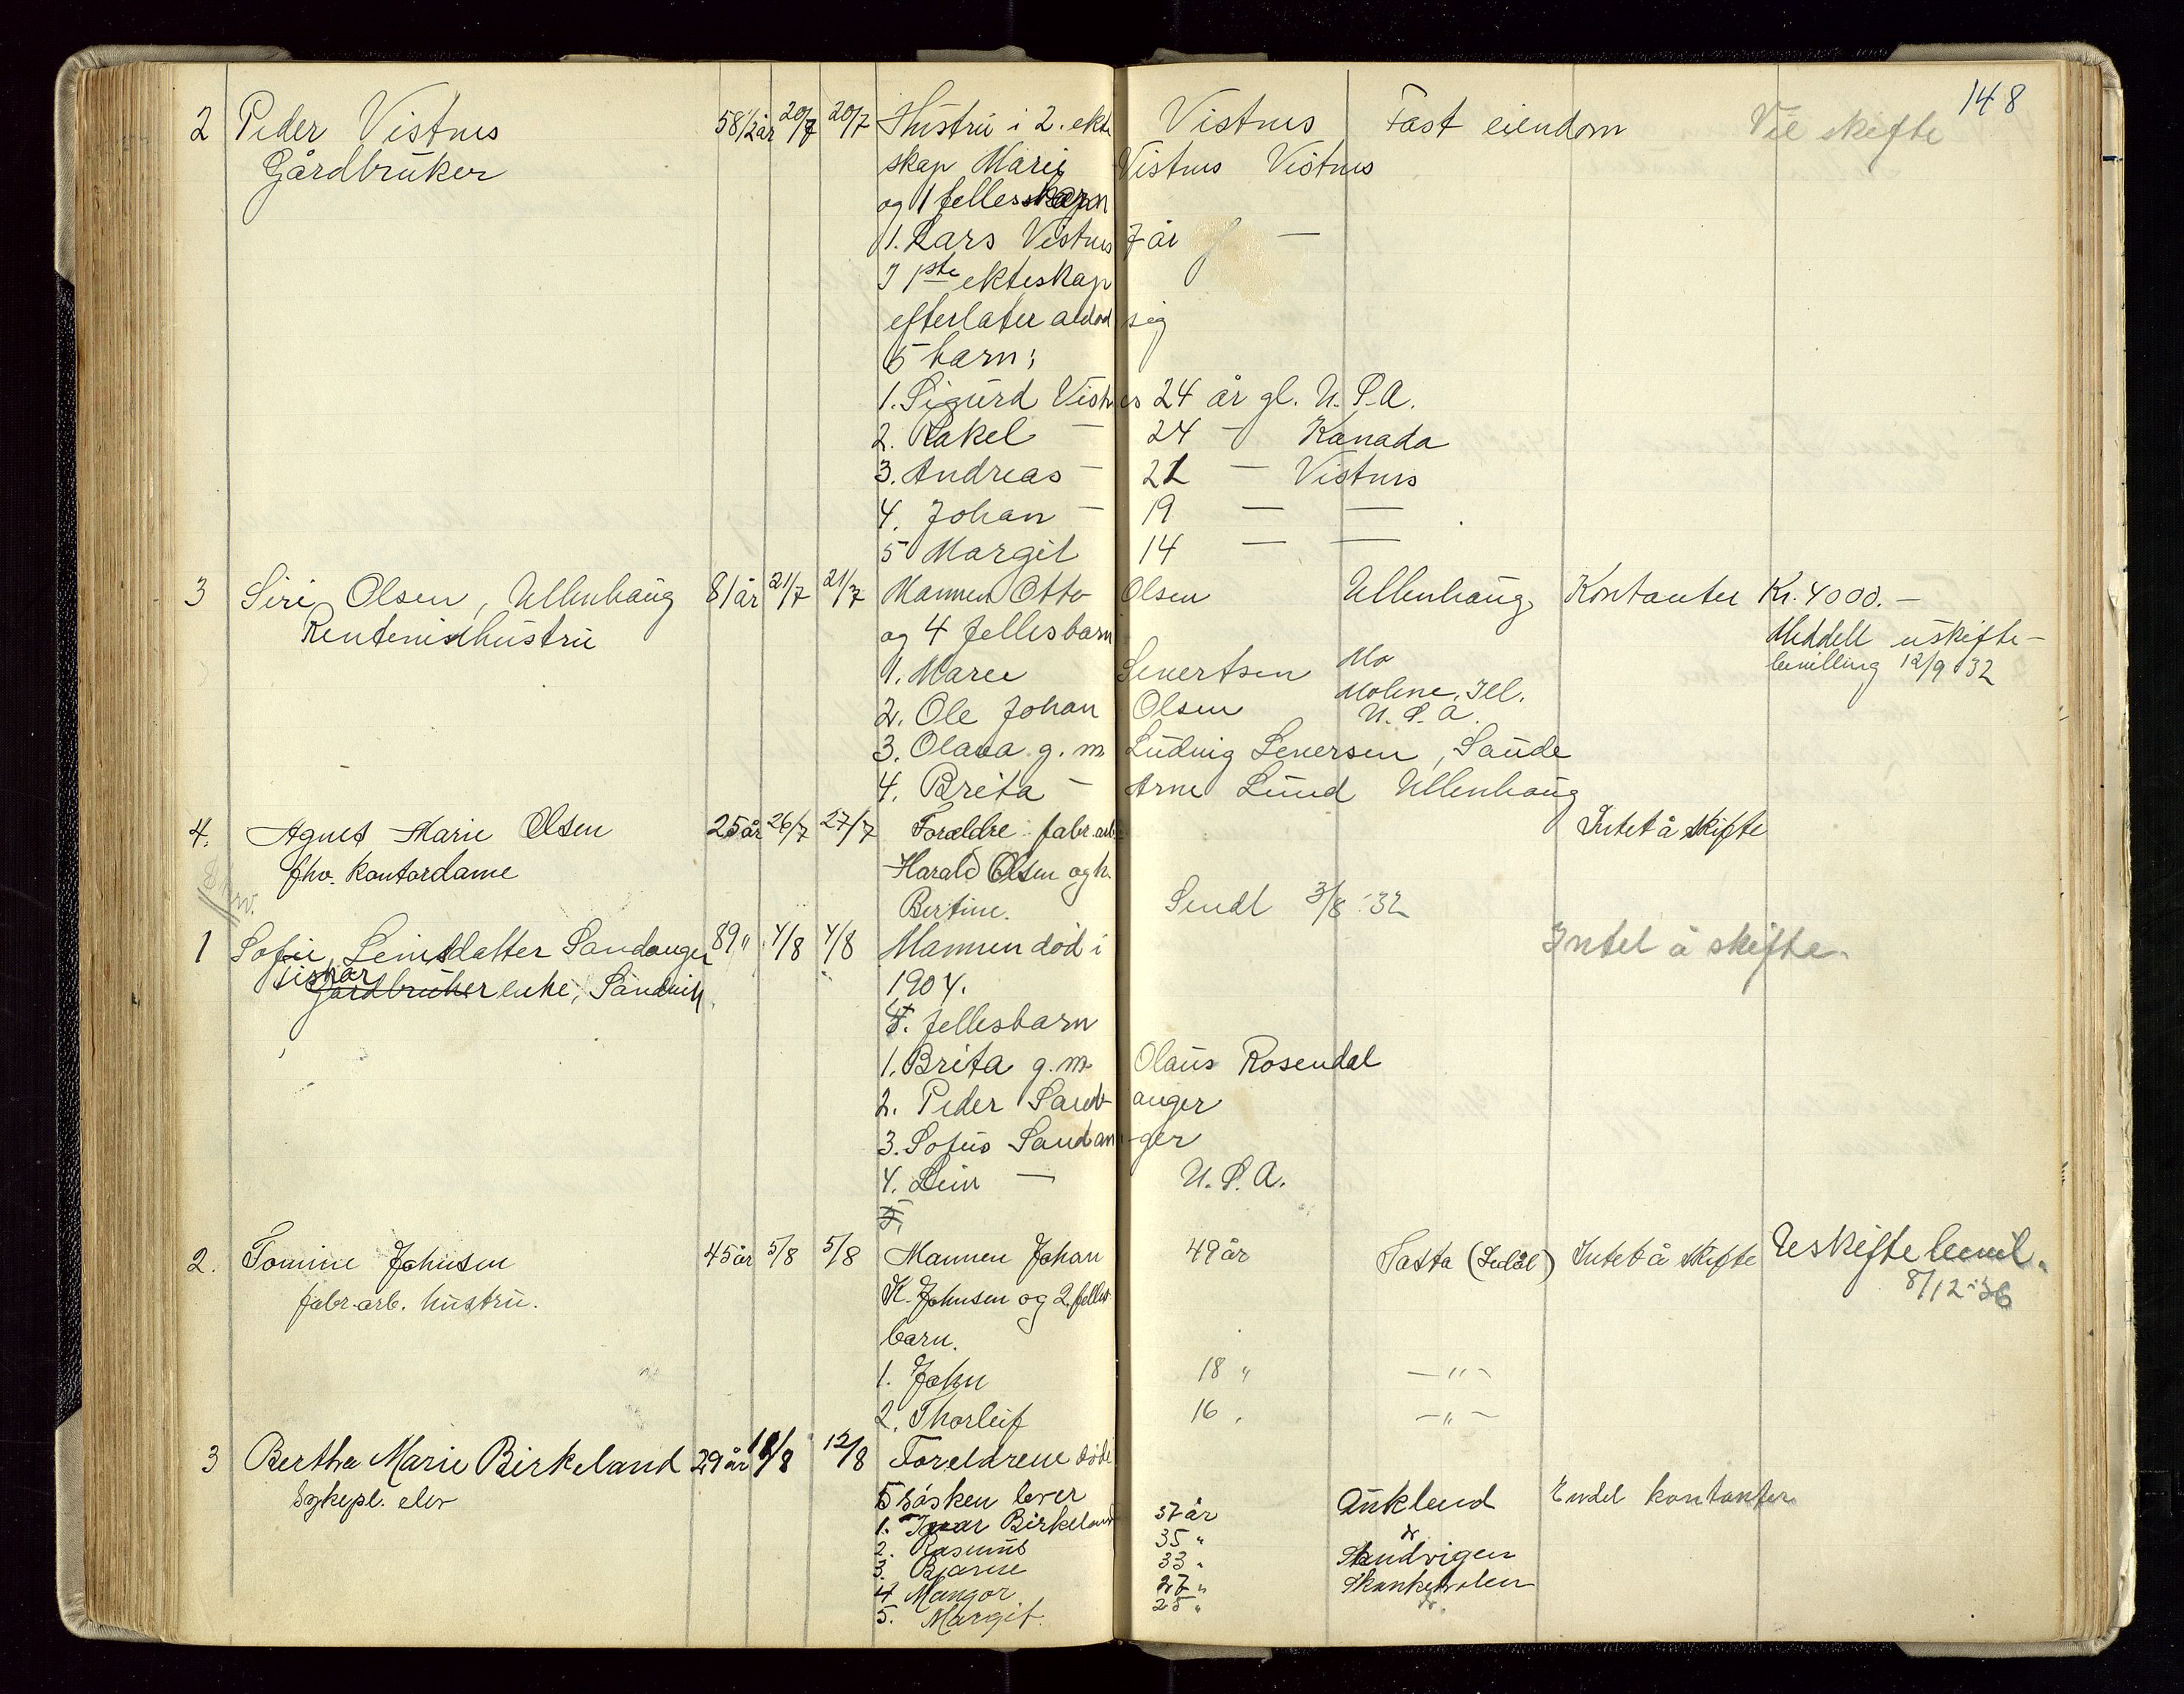 148
2 Peder Vistnes 58 1/2 år 20/7 20/7 Hustru i 2. ekte Vistnes Fast eiendom Vil skifte
Gårdbruker skap Marie Vistnes Vistnes
og 1 fellesbarn
1. Lars Vistnes 7 år —
I 1ste ekteskap
efterlater avdød sig
5 barn:
1. Sigurd Vistnes 24 år gl. U.S.A.
2. Rakel — 24 — Kanada
3. Andreas — 21 — Vistnes
4. Johan — 19 — —
5 Margit 14 — —
3 Siri Olsen, Ullenhaug 81 år 21/7 21/7 Mannen Otto Olsen Ullenhaug Kontanter Kr. 4000.—
Rentenisthustru og 4 fellesbarn Meddelt uskifte-
bevilling 12/9 32
1. Marie Severtsen Mo
2. Ole Johan Olsen Moline, Ill.
U.S.A.
3. Olava g. m Ludvig Seversen, Saude
4. Brita — Arne Lund Ullenhaug
4. Agnes Marie Olsen 25 år 26/7 27/7 Foreldre: fabr.arb. Intet å skifte
fhv. kontordame Harald Olsen og h.
Bertine. Sendt 3/8 '32
1 Sofie Leinsdatter Sandanger 89 " 4/8 4/8 Mannen død i Intet å skifte.
fisker Gårdbruker enke, Sandvik 1904.
4. fellesbarn
1. Brita g.m Olaus Rosendal
2. Peder Sandanger
3. Sofus Sandan-ger
4. Lein — U.S.A.
5.
2. Tomine Johnsen 45 år 5/8 5/8 Mannen Johan 49 år Tasta (Indal) Intet å skifte Uskiftebevil.
fabr.arb. hustru. K. Johnsen og 2 felles 8/12-36
barn.
1. John 18 " — " —
2. Thorleif 16 " — " —
3 Bertha Marie Birkeland 29 år 12/8 12/8 Foreldrene døde
Sykepl. elev 5 søsken lever Endel kontanter
1. Ivar Birkeland 37 år Aukland
2. Rasmus 35 " do
3. Bjarne 33 " Sandvigen
4 Mangor 27 " Skankeholen
5. Margit 25 " do.